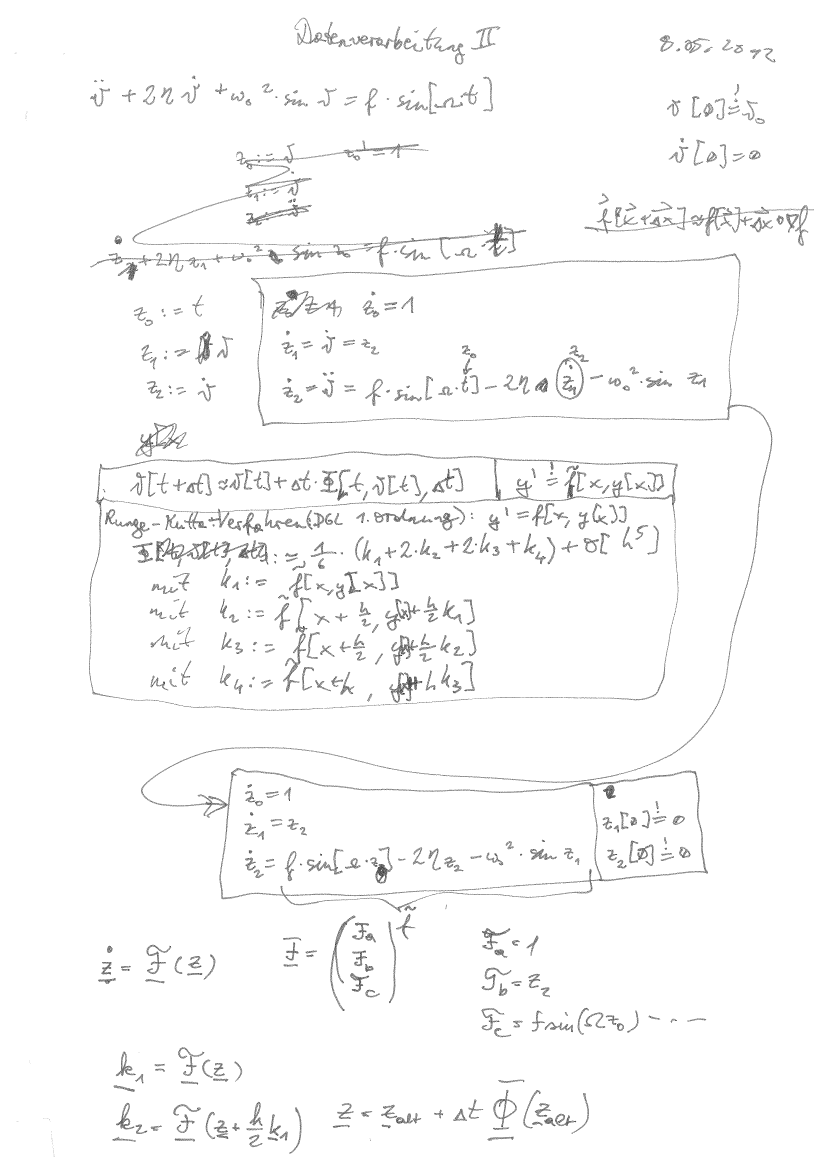 Datenverarbeitung II
8.05.2012
ϑ̈ + 2η ϑ̇ + ω₀² · sin ϑ = f · sin[Ω·t]
ϑ[0] =! ϑ₀
ϑ̇[0] = 0
z₀ := ϑ z₀' = 1
z₁ := ϑ̇
z₂ ϑ̈
f⃗[x⃗+Δx⃗] ≈ f[x⃗] + Δx⃗ ∘ ∇f
ż₁ + 2η z₁ + ω₀² sin z₀ = f · sin[Ω · t]
z₀ := t
ż₀ = 1
z₁ := ϑ
ż₁ = ϑ̇ = z₂
z₀ z₂
z₂ := ϑ̇
ż₂ = ϑ̈ = f · sin[Ω·t] − 2η ż₁ − ω₀² · sin z₁
ϑ[t+Δt] ≈ ϑ[t] + Δt · Φ[t, ϑ[t], Δt] y' =! f̃[x, y[x]]
Runge-Kutta-Verfahren (DGL 1. Ordnung): y' = f[x, y[x]]
:≈ 1/6 · (k₁ + 2·k₂ + 2·k₃ + k₄) + O[h⁵]
mit k₁ := f̃[x, y[x]]
mit k₂ := f̃[x + h/2, y[x] + h/2 k₁]
mit k₃ := f̃[x + h/2, y[x] + h/2 k₂]
mit k₄ := f̃[x+h, y[x] + h k₃]
ż₀ = 1
ż₁ = z₂ z₁[0] =! 0
ż₂ = f · sin[Ω · z₀] − 2η z₂ − ω₀² · sin z₁ z₂[0] =! 0
f̃
ż = F(z) F = (Fa Fb Fc) Fa = 1
Fb = z₂
Fc = f sin(Ωz₀) − − −
k₁ = F(z)
k₂ = F(z + h/2 k₁) z = z_alt + Δt Φ(z_alt)